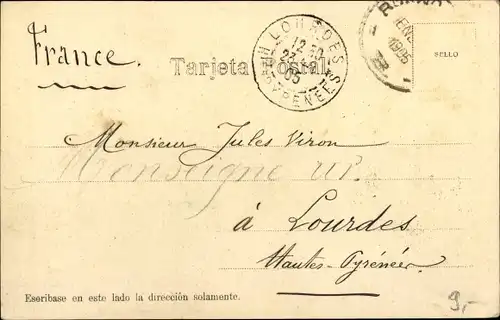 France.
Tarjeta Postal.
LOURDES
12 30
05
H PYRENEES
ENE
1905
SELLO
Monsieur Jules Viron
Monseigneur.
á Lourdes
Hautes-Pyrénées.
Escribase en este lado la dirección solamente.
9,-